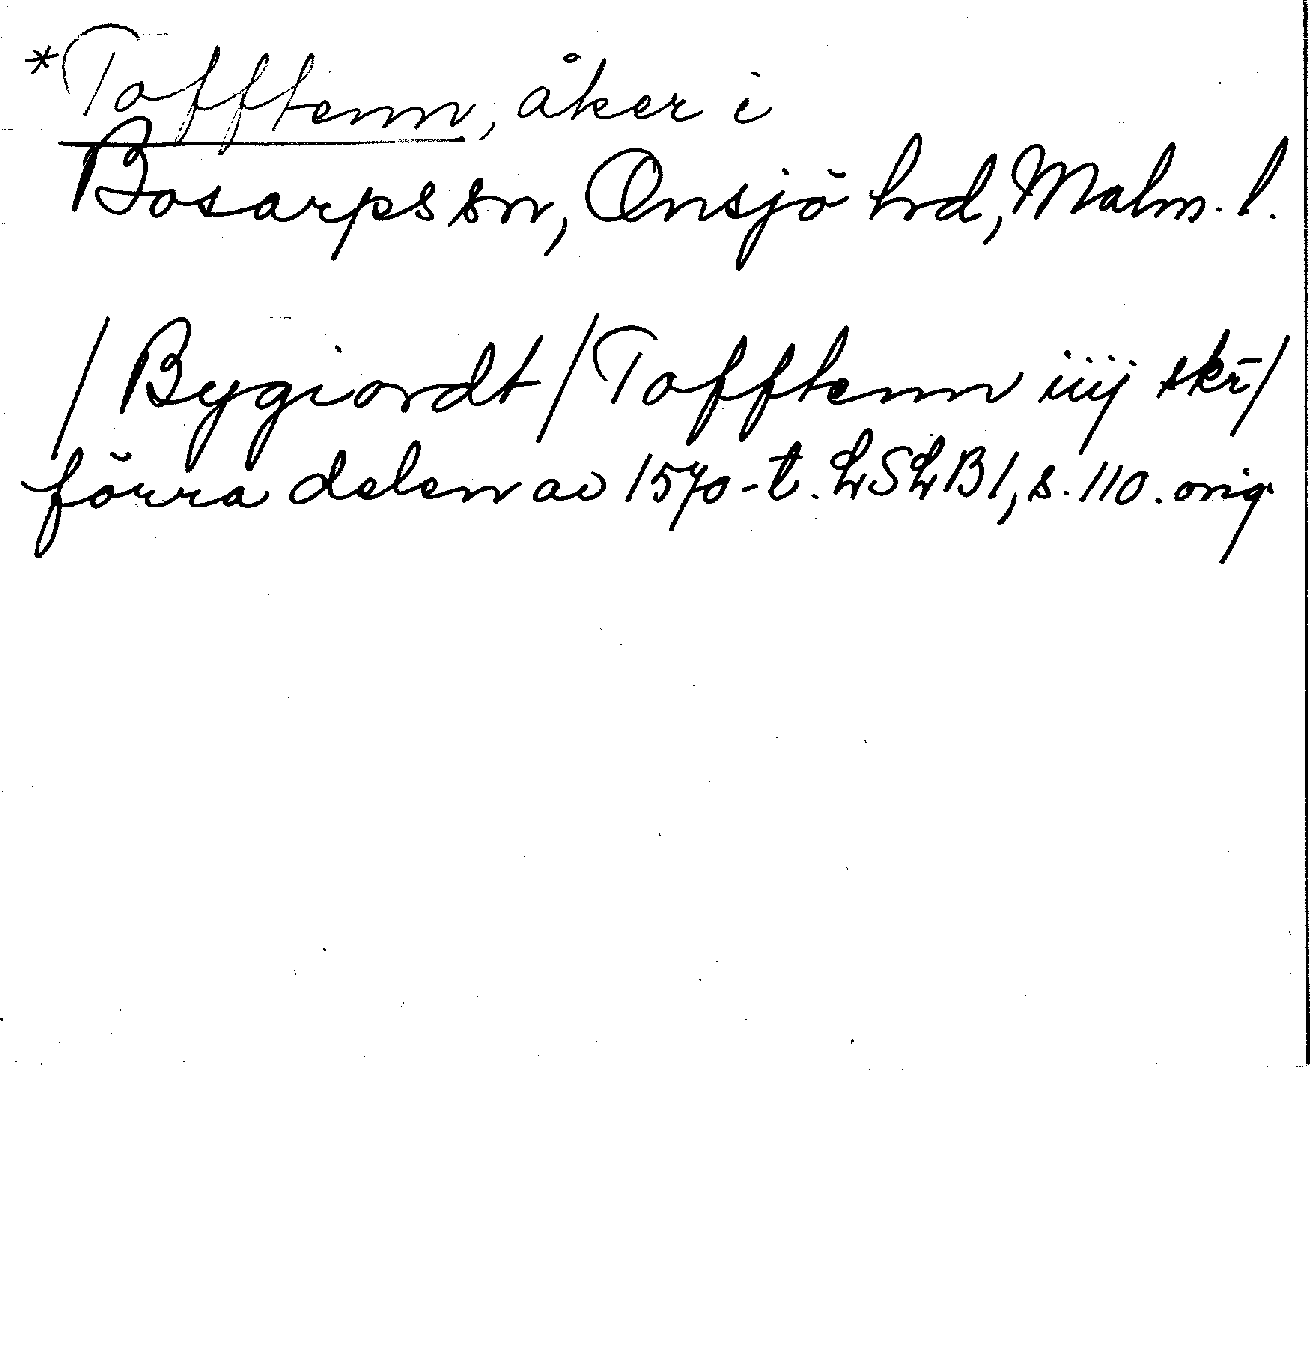 *Tofftenn, åker i
Bosarps sn, Onsjö hrd, Malm. l.
/Bygiordt/Tofftenn iiij skr̄/
förra delen av 1570-t. LSLB1, s. 110. orig.